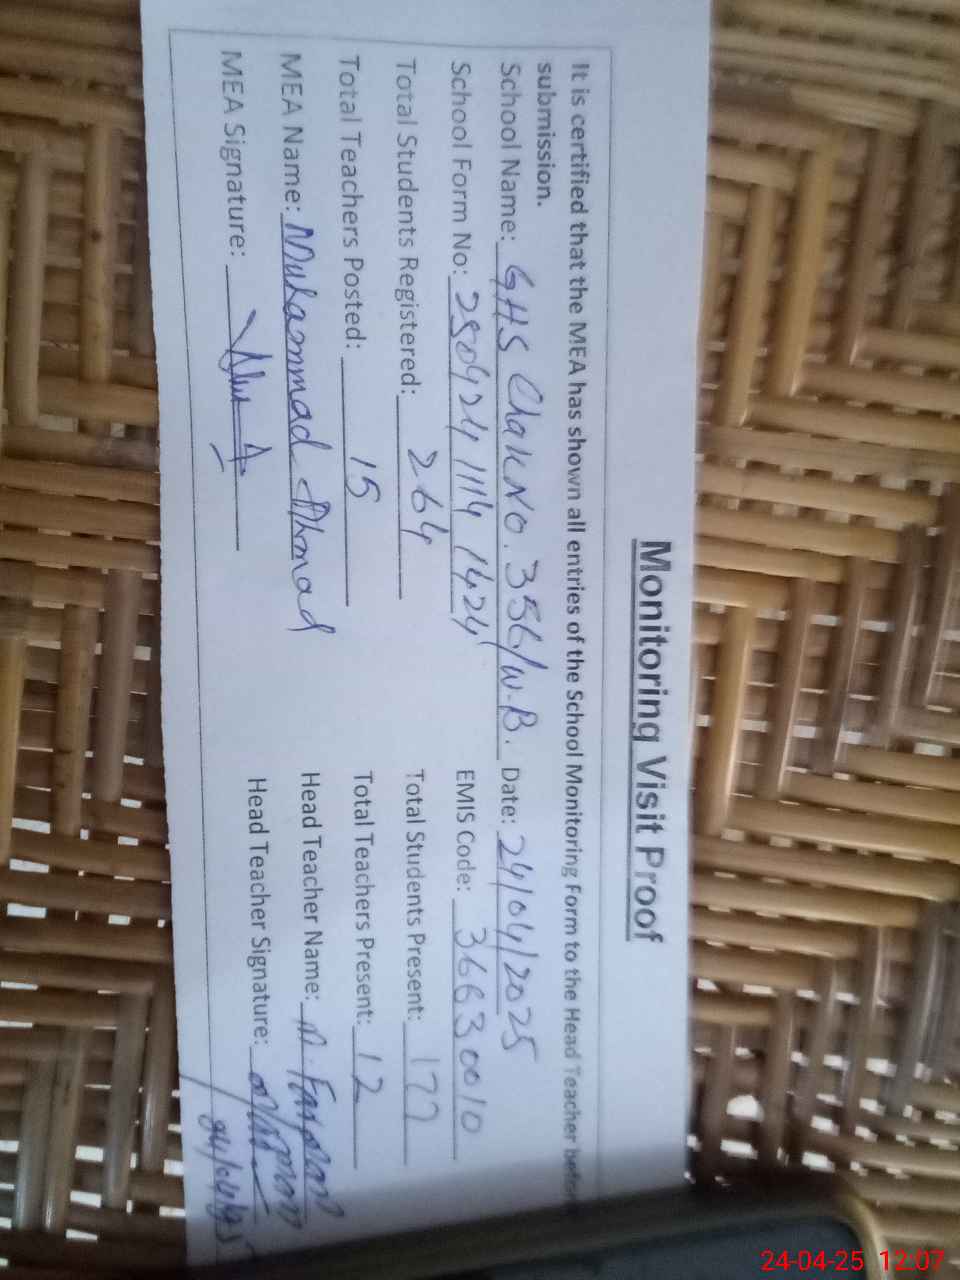 Monitoring Visit Proof
It is certified that the MEA has shown all entries of the School Monitoring Form to the Head Teacher before
submission.
School Name: GHS Chak No. 356/W.B. Date: 24/04/2025
School Form No: 2504241114 1424 EMIS Code: 36630010
Total Students Registered: 264 Total Students Present: 177
Total Teachers Posted: 15 Total Teachers Present: 12
MEA Name: Muhammad Ahmad Head Teacher Name:
MEA Signature: Head Teacher Signature:
24-04-25 12:07